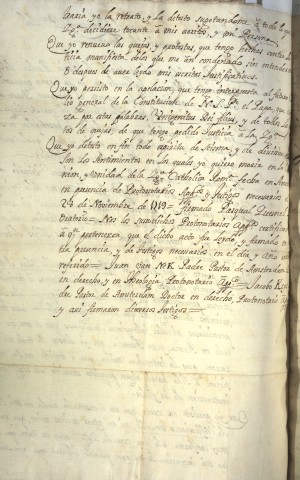 tario yo la retrato, y la detesto sugetandome a todo lo que
Yga decidiere tocante a mis escritos, y mi Persona.
Que yo renuevo las quejas, y protestas, que tengo hechas contra la
ticia manifiesta delos que me an condenado sin entender
y despues de aver leydo mis escritos Justificativos.
Que yo persisto en la apelacion, que tengo interpuesta al futuro
lio general de la Constitucion de N. S. P. el Papa, que
za por estas palabras, Unigenitus Dei filius, y de todos lo
tos de quejas de que tengo pedido Justicia a la Yga
Que yo detesto en fin todo espiritu de schisma, y de division
Son los sentimientos en los quales yo quiero morir en la
nion, y vnidad de la Yga Catholica Romna fecha en Amst
en presencia de Protonotarios Appcos y testigos necesarios
28 de Noviembre de 1719 = firmado Pasqual Quesnel
Oratorio = Nos los susodichos Protonotarios Appcos certificam
a qn pertenezca, que el dicho acto fue leydo, y firmado en
tra presencia, y de testigos necesarios, en el dia, y año
referido = Juan Van Padre Pastor de Amsterdam
en derecho, y en theologia Protonotario Appco = Jacobo
dre Pastor de Amsterdam Doctor en derecho, Protonotario
y assi firmaron diversos testigos =